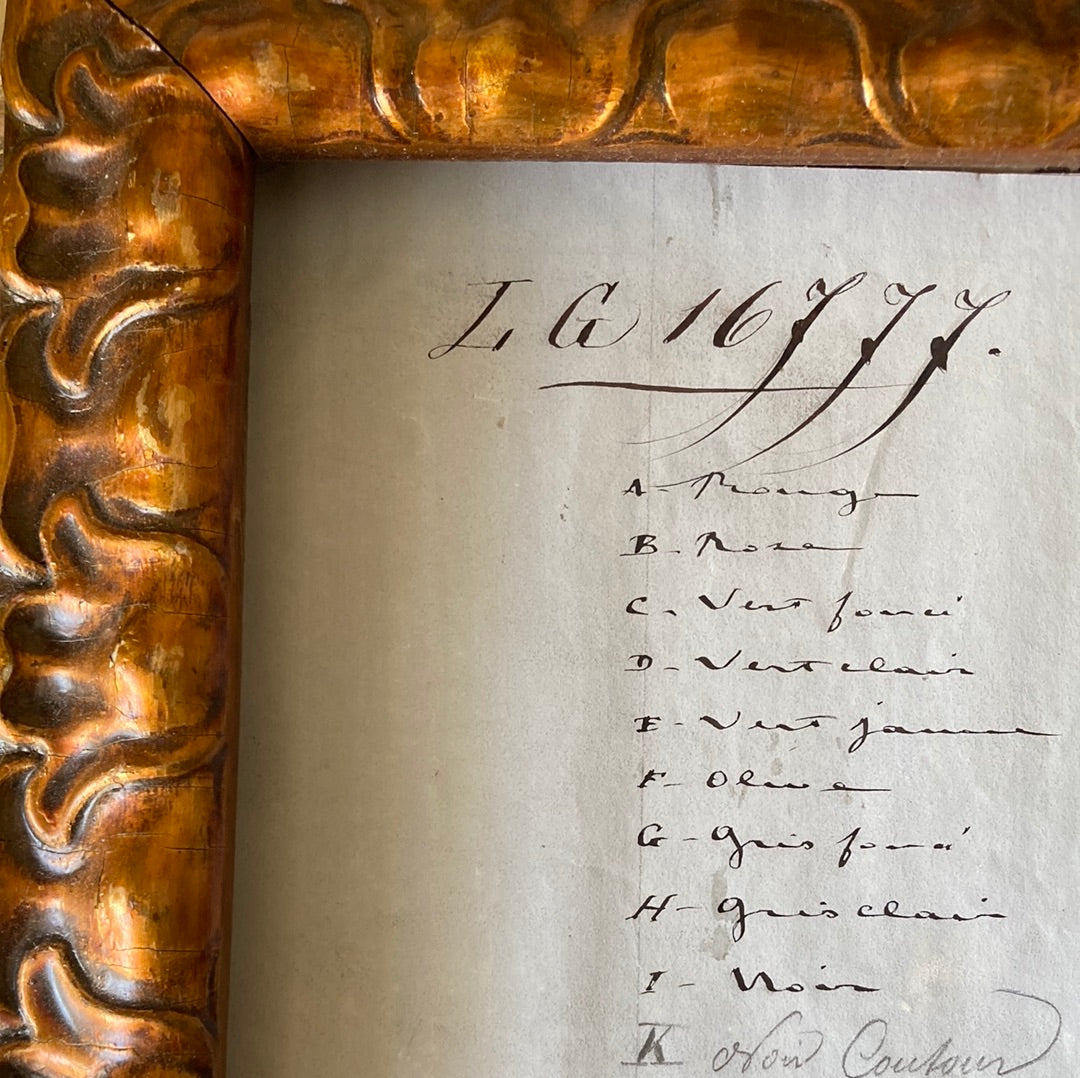 LG 16777.
A- Rouge
B- Rose
C. Vert foncé
D- Vert clair
E- Vert jaune
F- Olive
G- Gris foncé
H- Gris clair
I- Noir
K Noir Contour